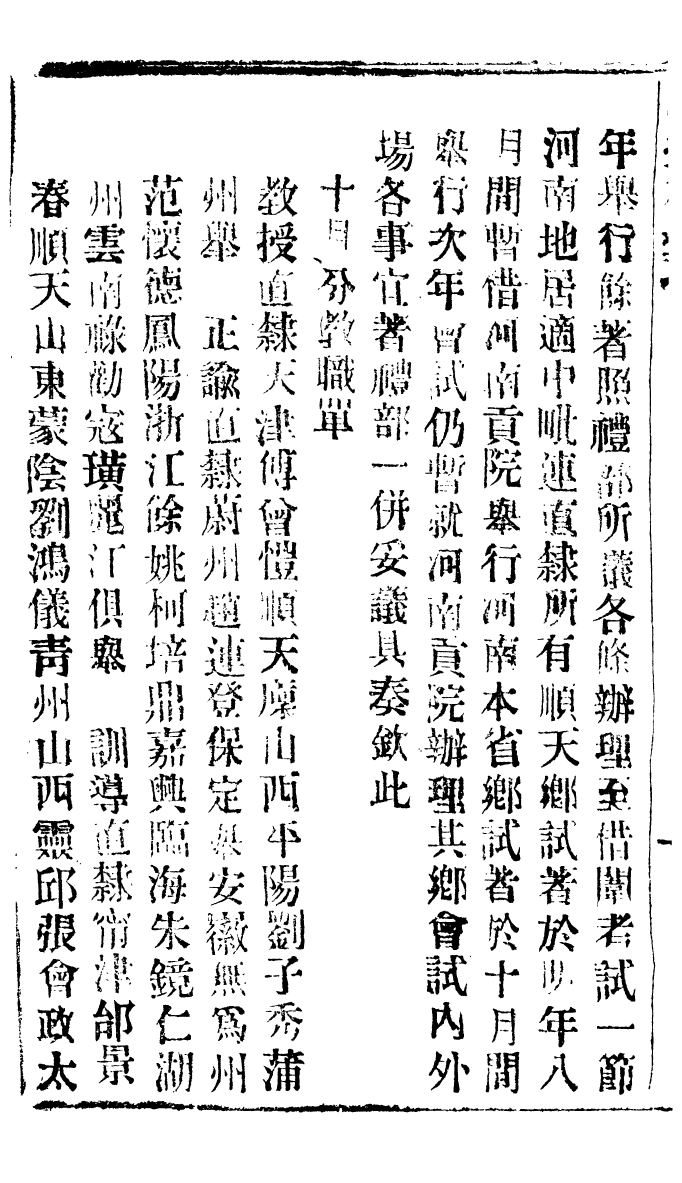 年舉行餘著照禮部所議各條辦理至借闈考試一節
河南地居適中毗連直隸所有順天鄉試著於明年八
月間暫借河南貢院舉行河南本省鄉試著於十月間
舉行次年會試仍暫就河南貢院辦理其鄉會試內外
場各事宜著禮部一併妥議具奏欽此
十月分教職單
教授直隸天津傅曾愷順天廩山西平陽劉子秀蒲
州舉　正諭直隸蔚州趙連登保定舉安徽無爲州
范懷德鳳陽浙江餘姚柯培鼎嘉興臨海朱鏡仁湖
州雲南祿勸寇璜麗江俱舉　訓導直隸甯津邰景
春順天山東蒙陰劉鴻儀青州山西靈邱張會政太